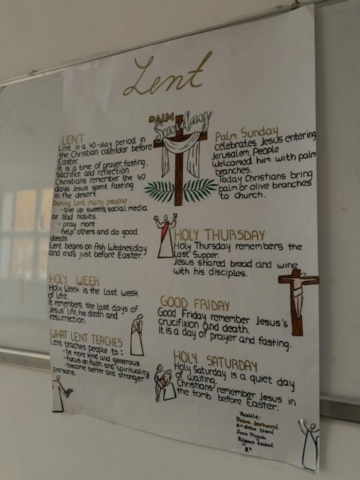 Lent
LENT
Lent is a 40-day period in
the Christian calendar before
Easter
It is a time of prayer fasting,
sacrifice and reflection
Christians remember the 40
days Jesus spent fasting
in the desert
During Lent, many people
- give up sweets, social media
or bad habits.
- pray more
- help others and do good
deeds
Lent begins on Ash Wednesday
and ends just before Easter.
HOLY WEEK
Holy Week is the last week
of Lent.
It remembers the last days of
Jesus' life, his death and
resurrection.
WHAT LENT TEACHES
Lent teaches people to:
- be more kind and generous
- focus on faith and spirituality
- become better and stronger
persons.
PALM
Sunday
Palm Sunday
celebrates Jesus entering
Jerusalem. People
Welcomed him with palm
branches.
Today Christians bring
palm or olive branches
to church.
HOLY THURSDAY
Holy Thursday remembers the
Last Supper.
Jesus shared bread and wine
with his disciples.
GOOD FRIDAY
Good Friday remember Jesus's
crucifixion and death.
It is a day of prayer and fasting.
HOLY SATURDAY
Holy Saturday is a quiet day
of waiting.
Christians remember Jesus in
the tomb before Easter.